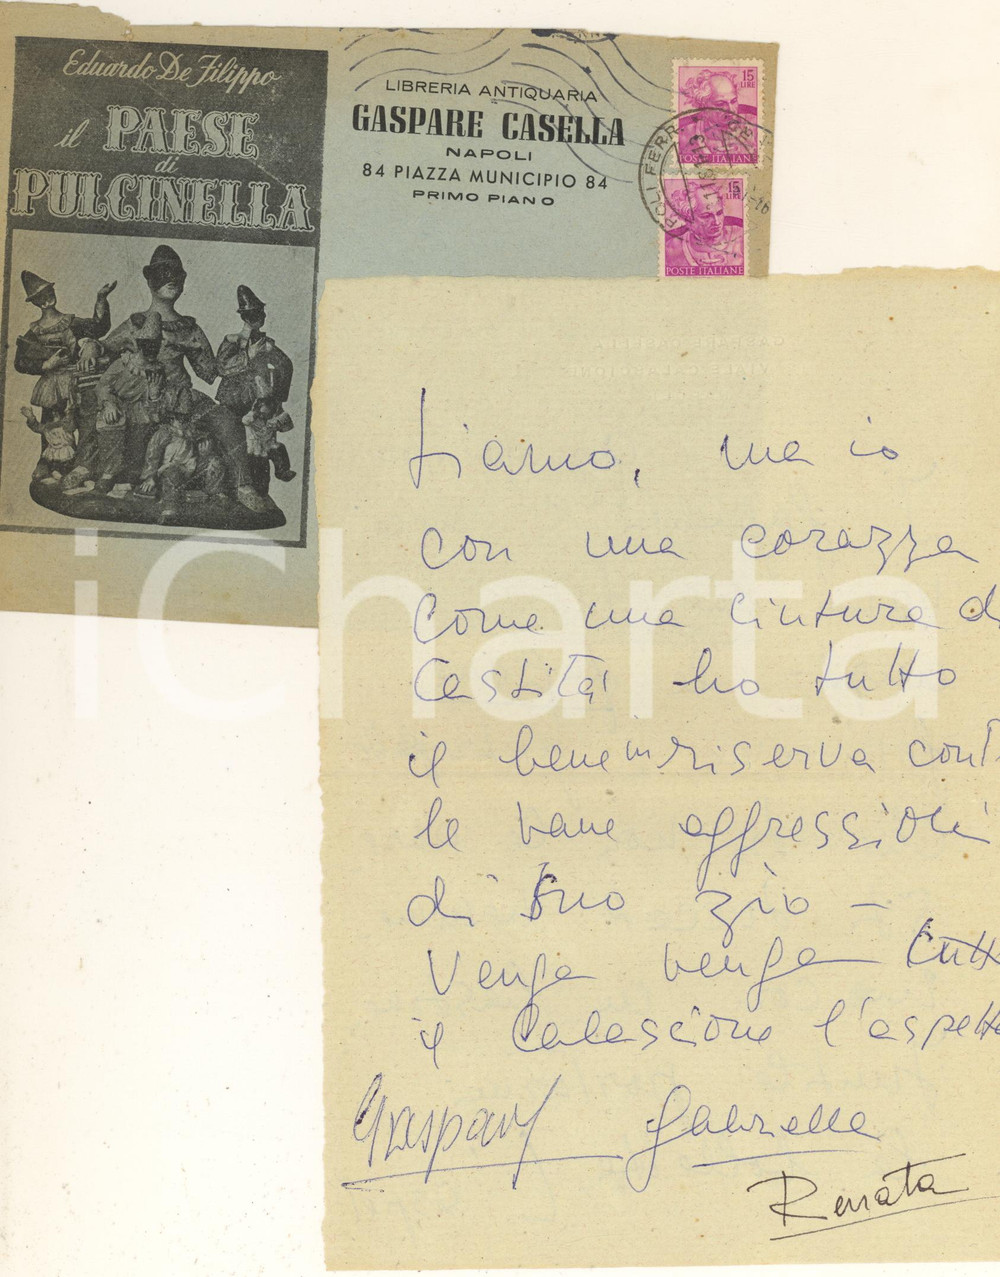 Eduardo De Filippo
il PAESE
di
PULCINELLA
LIBRERIA ANTIQUARIA
GASPARE CASELLA
NAPOLI
84 PIAZZA MUNICIPIO 84
PRIMO PIANO
15
LIRE
POSTE ITALIANE
15
LIRE
POSTE ITALIANE
POLI FERR.
tiamo, ma io
con una corazza
come una cintura di
castità ho tutto
il bene in riserva cont
le vane aggressioni
di suo zio —
Venga venga tutto
il Calascione l'aspetta
Gaspare Gabriella
Renata
iCharta